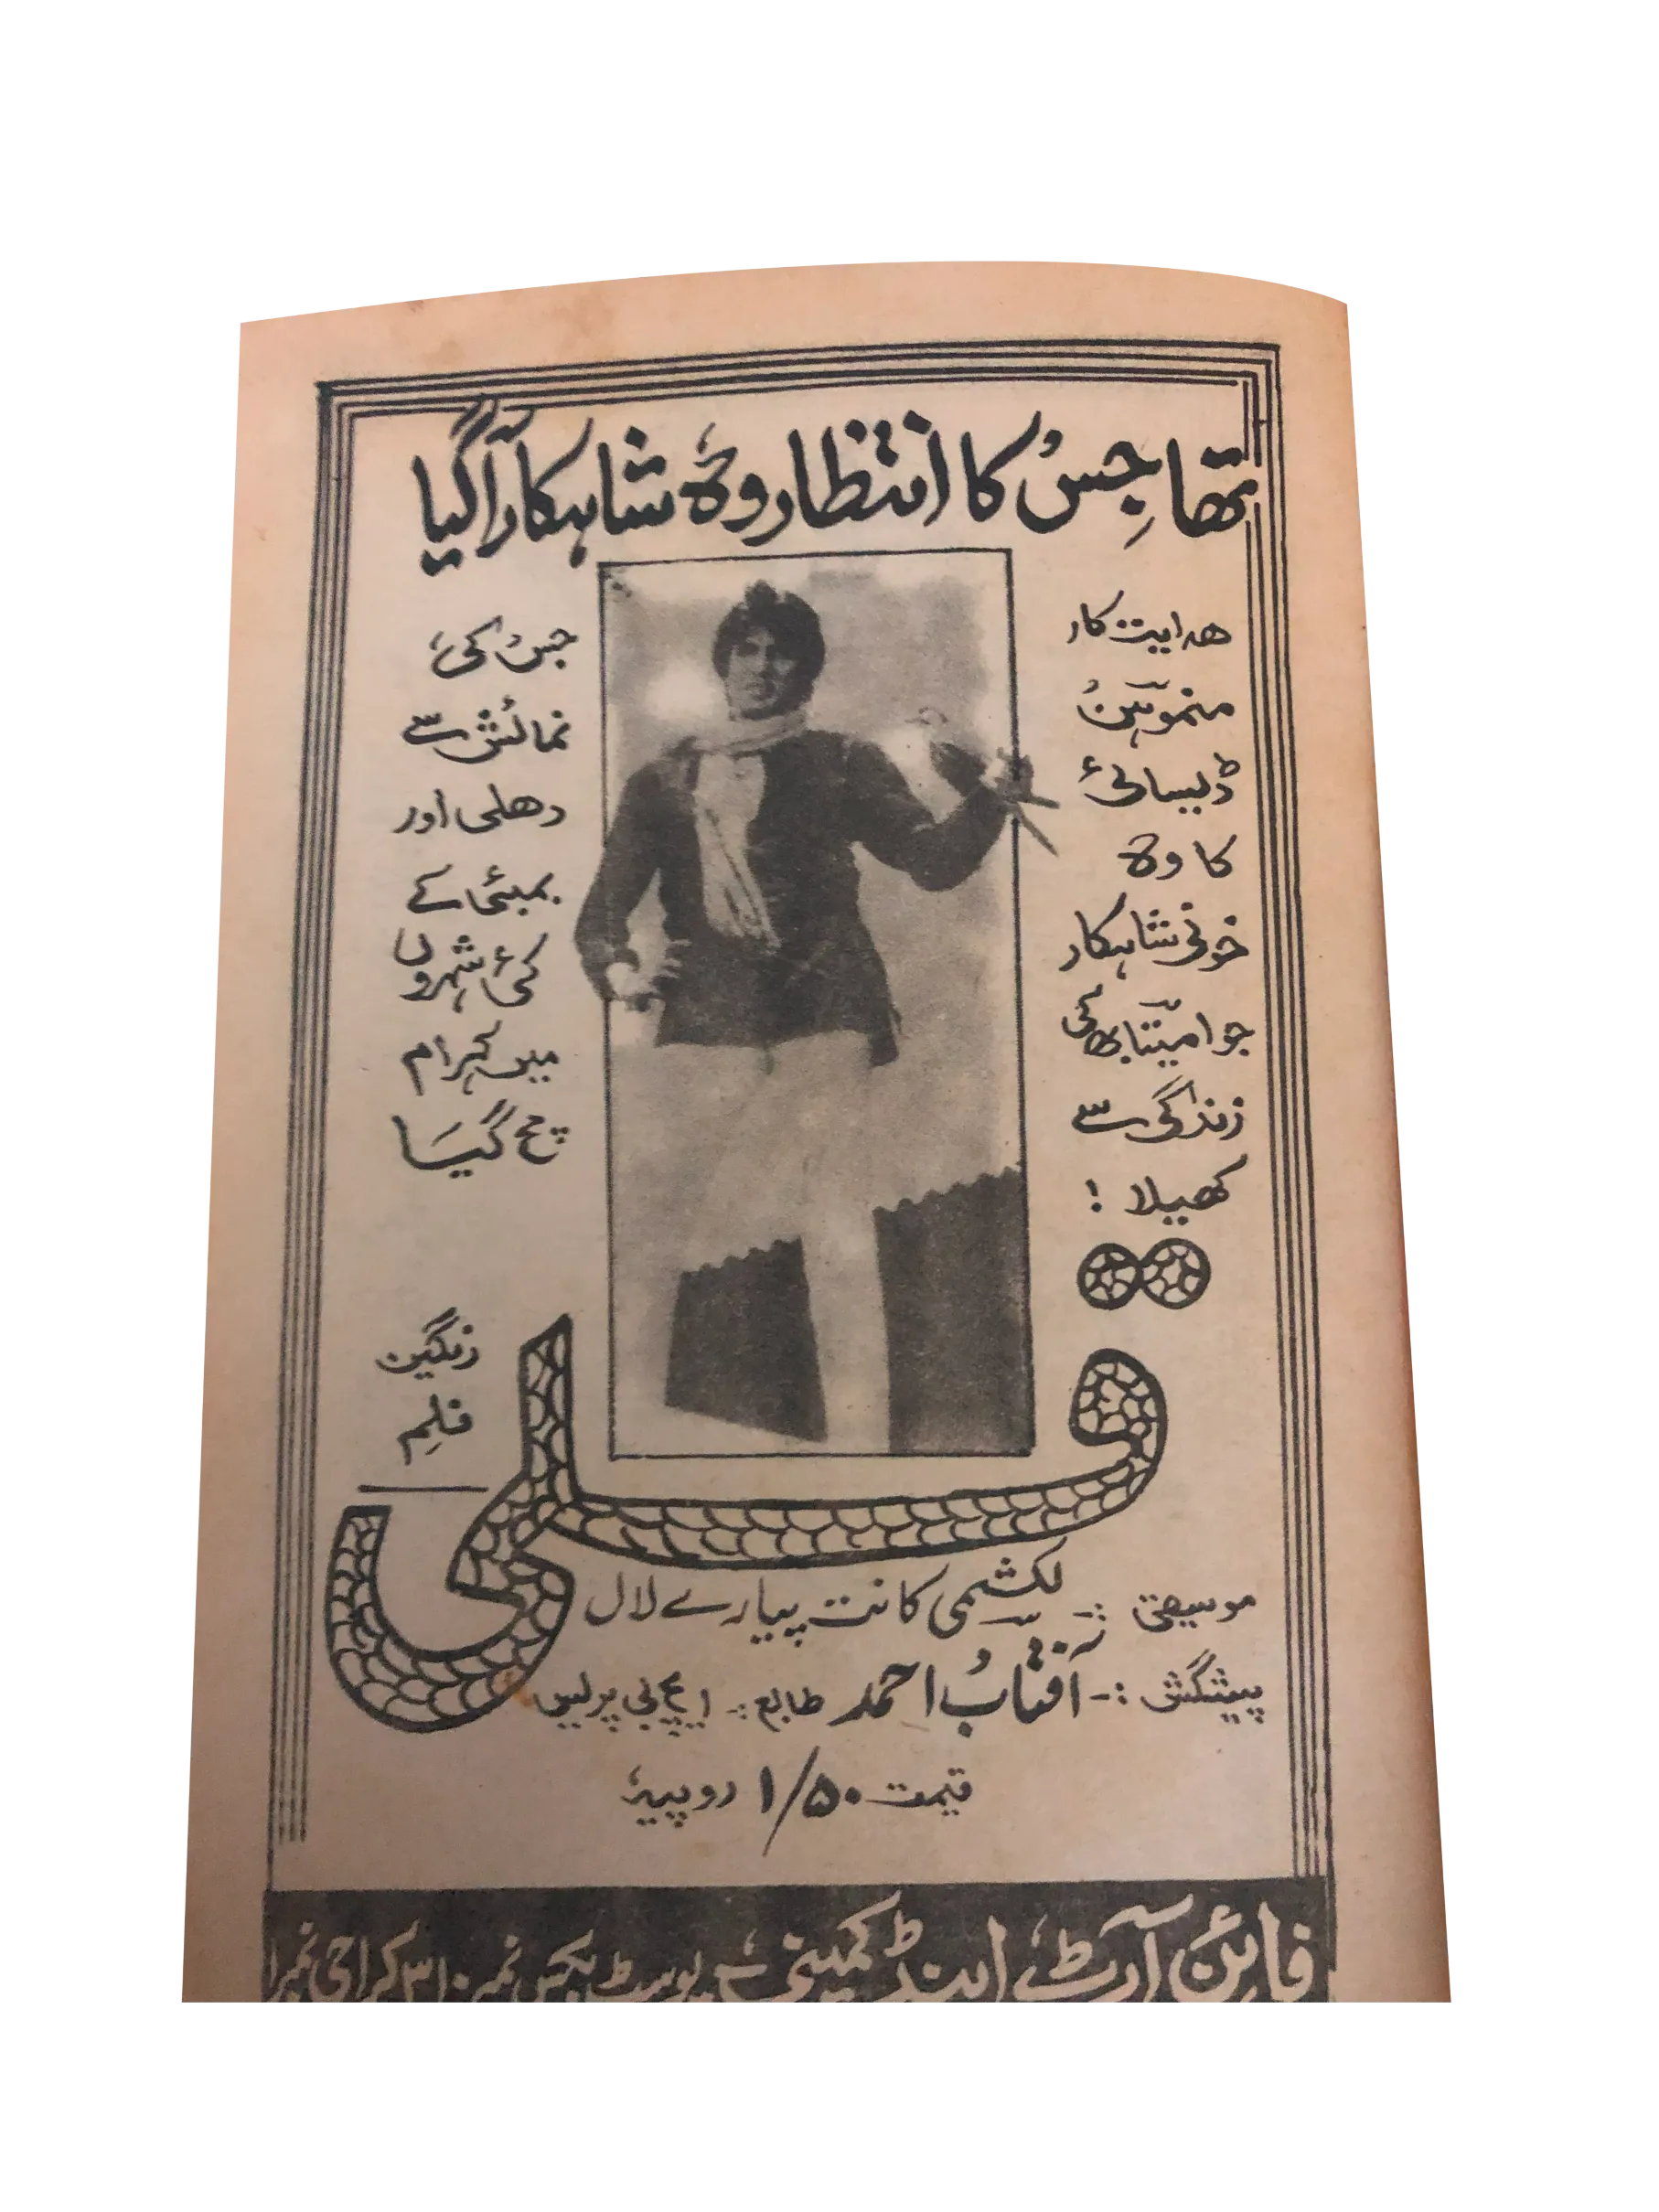 تھا جِسُ کا انتظار وہ شاہکار آگیا
ھدایت کار
منموہن
ڈیسائی
کا وہ
خونی شاہکار
جو امیتابھ کی
زندگی سے
کھیلا !
جسُ کی
نمائش سے
دھلی اور
بمبئی کے
کئی شہروں
میں کہرام
مچ گیَا
رنگین
فلِم
قلی
موسیقی :- لکشمی کانت پیارے لال
پیشکش :- آفتابُ احمد طابع :- ایچ بی پریس
قیمت ۱/۵۰ روپیہ
فائن آرٹ اینڈ کمپنی پوسٹ بکس نمبر ۳۱۰ کراچی نمبر ۱